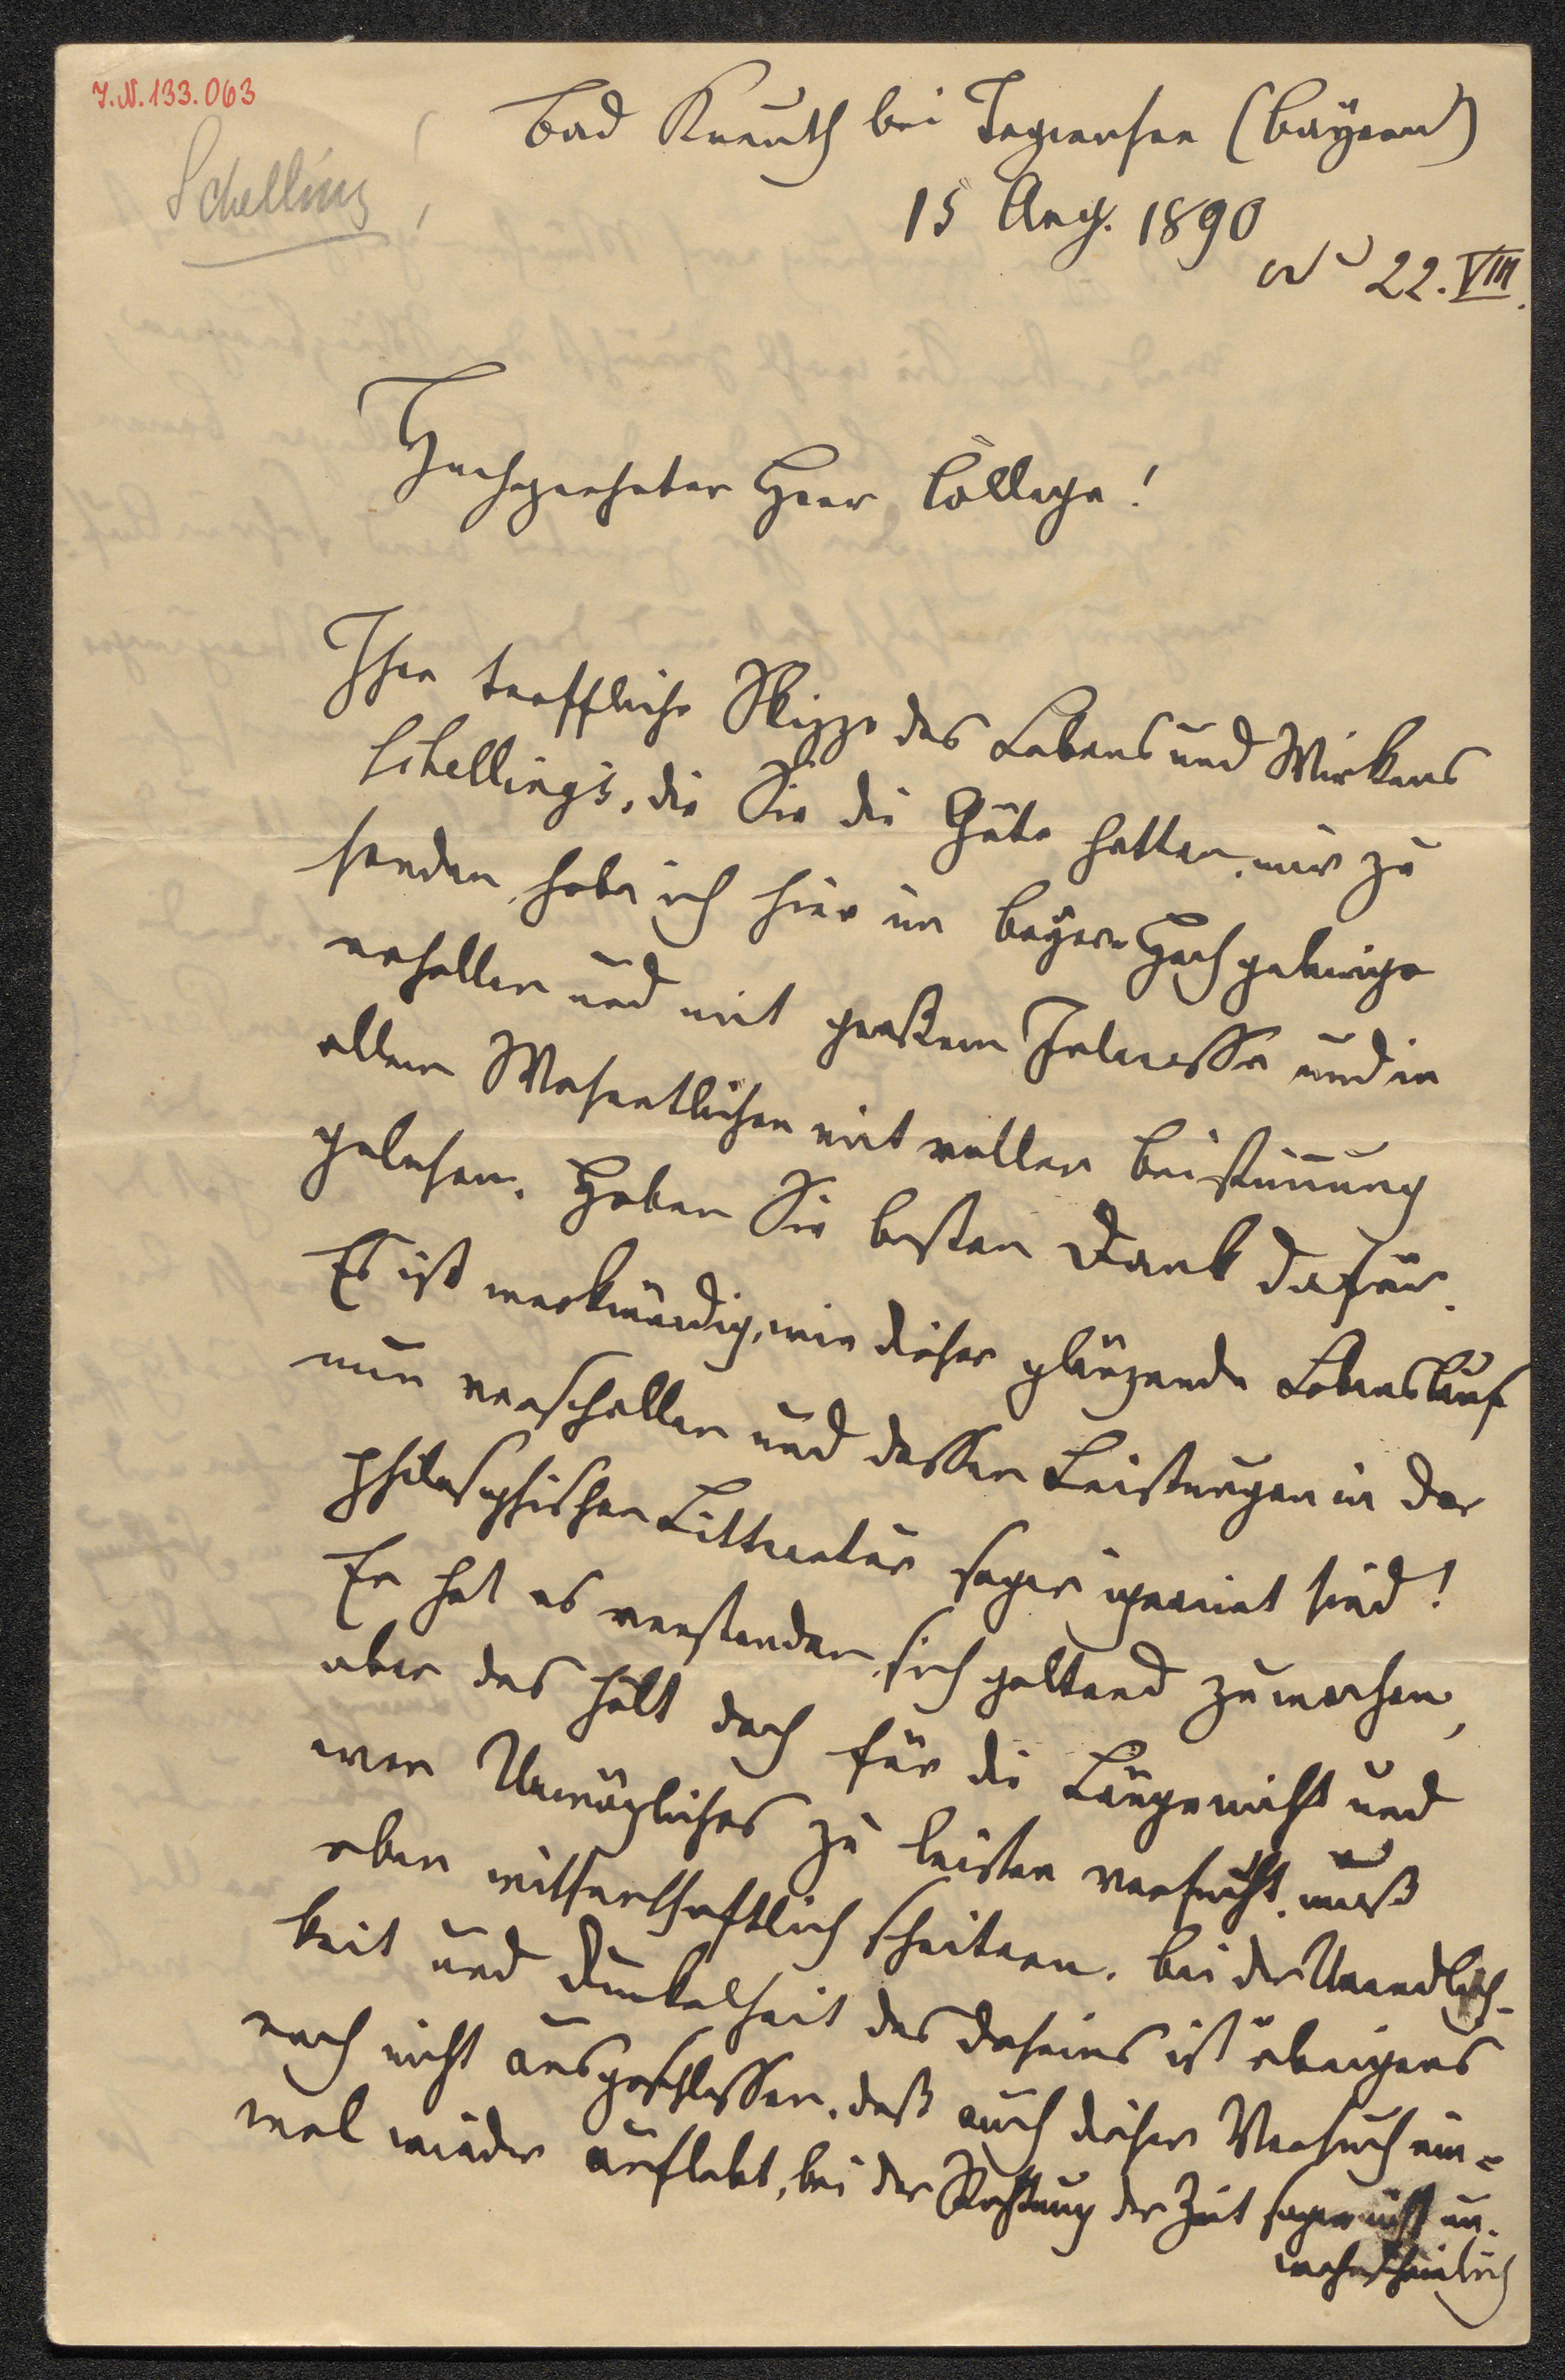 J.N. 133.063
Schelling
Bad Kreuth bei Tegernsee (Bayern)
15 Aug. 1890
22. VIII.
Hochgeehrter Herr College!
Ihre treffliche Skizze des Lebens und Wirkens
Schelling's, die Sie die Güte hatten, mir zu
senden, habe ich hier im bayer. Hochgebirge
erhalten und mit großem Interesse und in
allem Wesentlichen mit voller Beistimmung
gelesen. Haben Sie besten Dank dafür.
Es ist merkwürdig, wie dieser glänzende Lebenslauf
nun verschollen und dessen Leistungen in der
philosophischen Litteratur sogar ignorirt sind!
Er hat es verstanden, sich geltend zu machen,
aber das hält doch für die Länge nicht und
wer Unmögliches zu leisten versucht, muß
eben wissenschaftlich scheitern. Bei der Unendlich-
keit und Dunkelheit des Daseins ist übrigens
noch nicht ausgeschlossen, daß auch dieser Versuch ein-
mal wieder auflebt, bei der Richtung der Zeit sogar nicht un-
wahrscheinlich